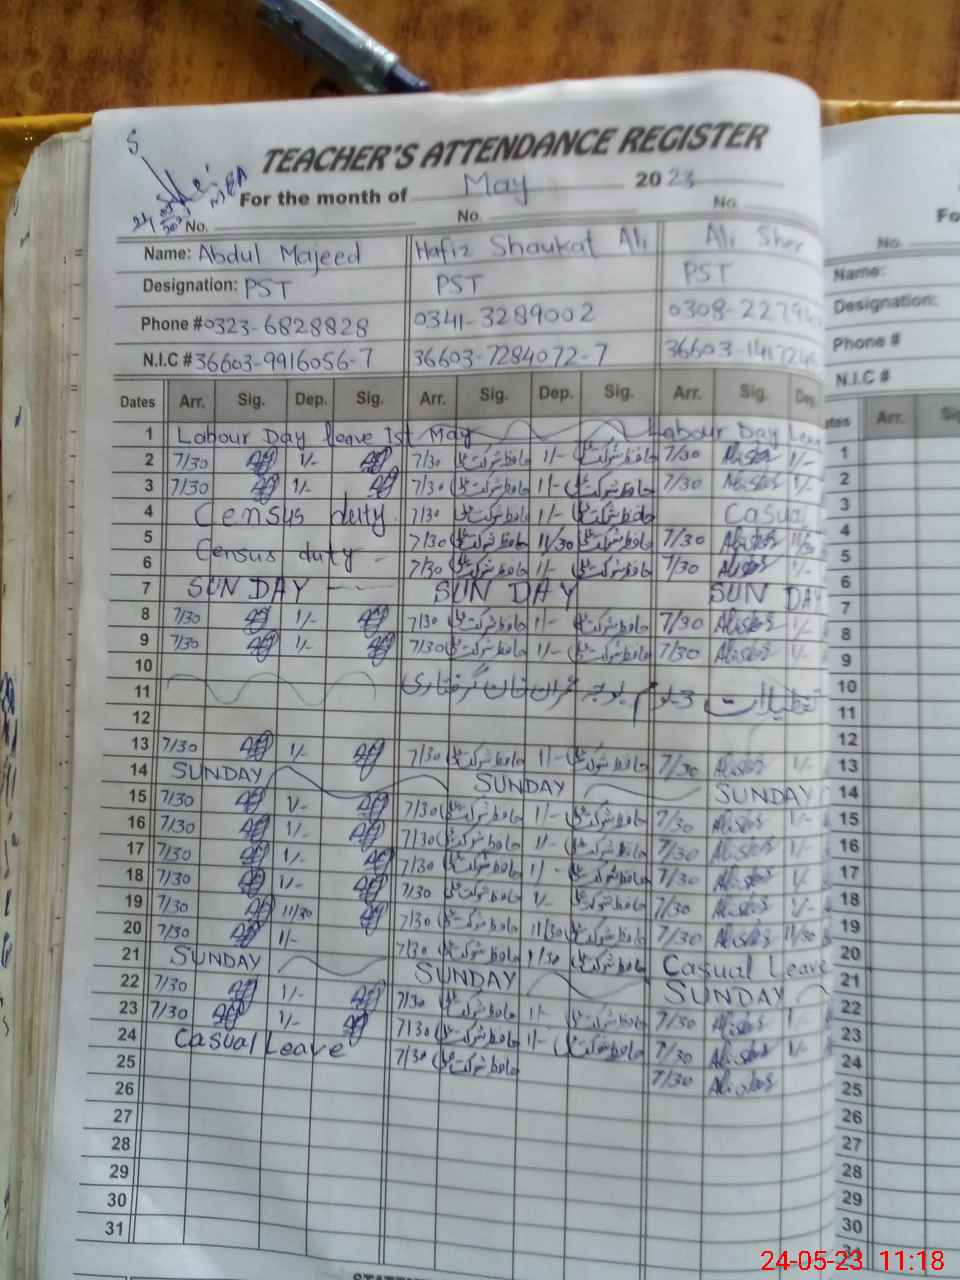 TEACHER'S ATTENDANCE REGISTER
For the month of May 2023
No. No. No.
Name: Abdul Majeed Hafiz Shaukat Ali Ali Sher
Designation: PST PST PST
Phone # 0323-6828828 0341-3289002 0308-22794
N.I.C # 36603-9916056-7 36603-7284072-7 36603-1417246
Dates Arr. Sig. Dep. Sig. Arr. Sig. Dep. Sig. Arr. Sig. Dep.
1 Labour Day leave 1st May Labour Day Leave
2 7/30 1/- 7/30 حافظ شوکت علی 1/- حافظ شوکت علی 7/30 Ali sher 1/-
3 7/30 1/- 7/30 حافظ شوکت علی 1/- حافظ شوکت علی 7/30 Ali sher 1/-
4 Census duty 7/30 حافظ شوکت علی 1/- حافظ شوکت علی Casual
5 Census duty - 7/30 حافظ شوکت علی 11/30 حافظ شوکت علی 7/30 Ali sher 11/30
6 7/30 حافظ شوکت علی 1/- حافظ شوکت علی 7/30 Ali sher 1/-
7 SUNDAY SUNDAY SUNDAY
8 7/30 1/- 7/30 حافظ شوکت علی 1/- حافظ شوکت علی 7/30 Ali sher 1/-
9 7/30 1/- 7/30 حافظ شوکت علی 1/- حافظ شوکت علی 7/30 Ali sher 1/-
10
11 تعطیلات 3 یوم بوجہ عمران خان گرفتاری
12
13 7/30 1/- 7/30 حافظ شوکت علی 1/- حافظ شوکت علی 7/30 Ali sher 1/-
14 SUNDAY SUNDAY SUNDAY
15 7/30 1/- 7/30 حافظ شوکت علی 1/- حافظ شوکت علی 7/30 Ali sher 1/-
16 7/30 1/- 7/30 حافظ شوکت علی 1/- حافظ شوکت علی 7/30 Ali sher 1/-
17 7/30 1/- 7/30 حافظ شوکت علی 1/- حافظ شوکت علی 7/30 Ali sher 1/-
18 7/30 1/- 7/30 حافظ شوکت علی 1/- حافظ شوکت علی 7/30 Ali sher 1/-
19 7/30 11/30 7/30 حافظ شوکت علی 11/30 حافظ شوکت علی 7/30 Ali sher 11/30
20 7/30 1/- 7/30 حافظ شوکت علی 1/30 حافظ شوکت علی Casual Leave
21 SUNDAY SUNDAY SUNDAY
22 7/30 1/- 7/30 حافظ شوکت علی 1/- حافظ شوکت علی 7/30 Ali sher 1/-
23 7/30 1/- 7/30 حافظ شوکت علی 1/- حافظ شوکت علی 7/30 Ali sher 1/-
24 Casual Leave 7/30 حافظ شوکت علی 7/30 Ali sher
25
26
27
28
29
30
31
No.
Name:
Designation:
Phone #
N.I.C #
Arr.
1
2
3
4
5
6
7
8
9
10
11
12
13
14
15
16
17
18
19
20
21
22
23
24
25
26
27
28
29
30
31
24-05-23 11:18